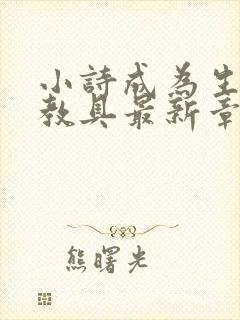 小詩成為生
教具最新章
熊曙光